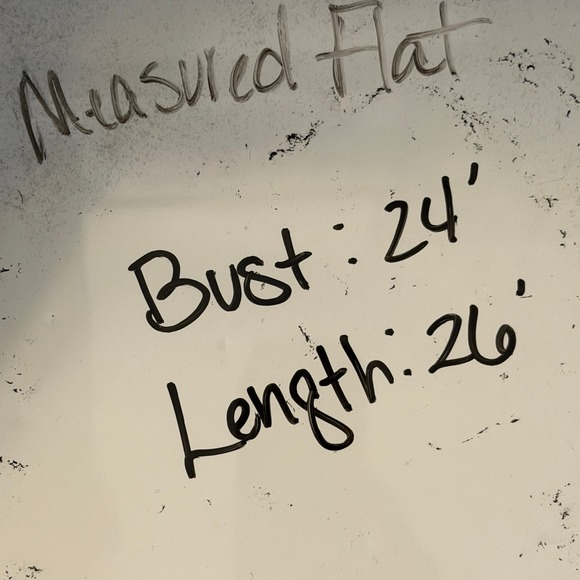 Measured Flat
Bust: 24'
Length: 26'